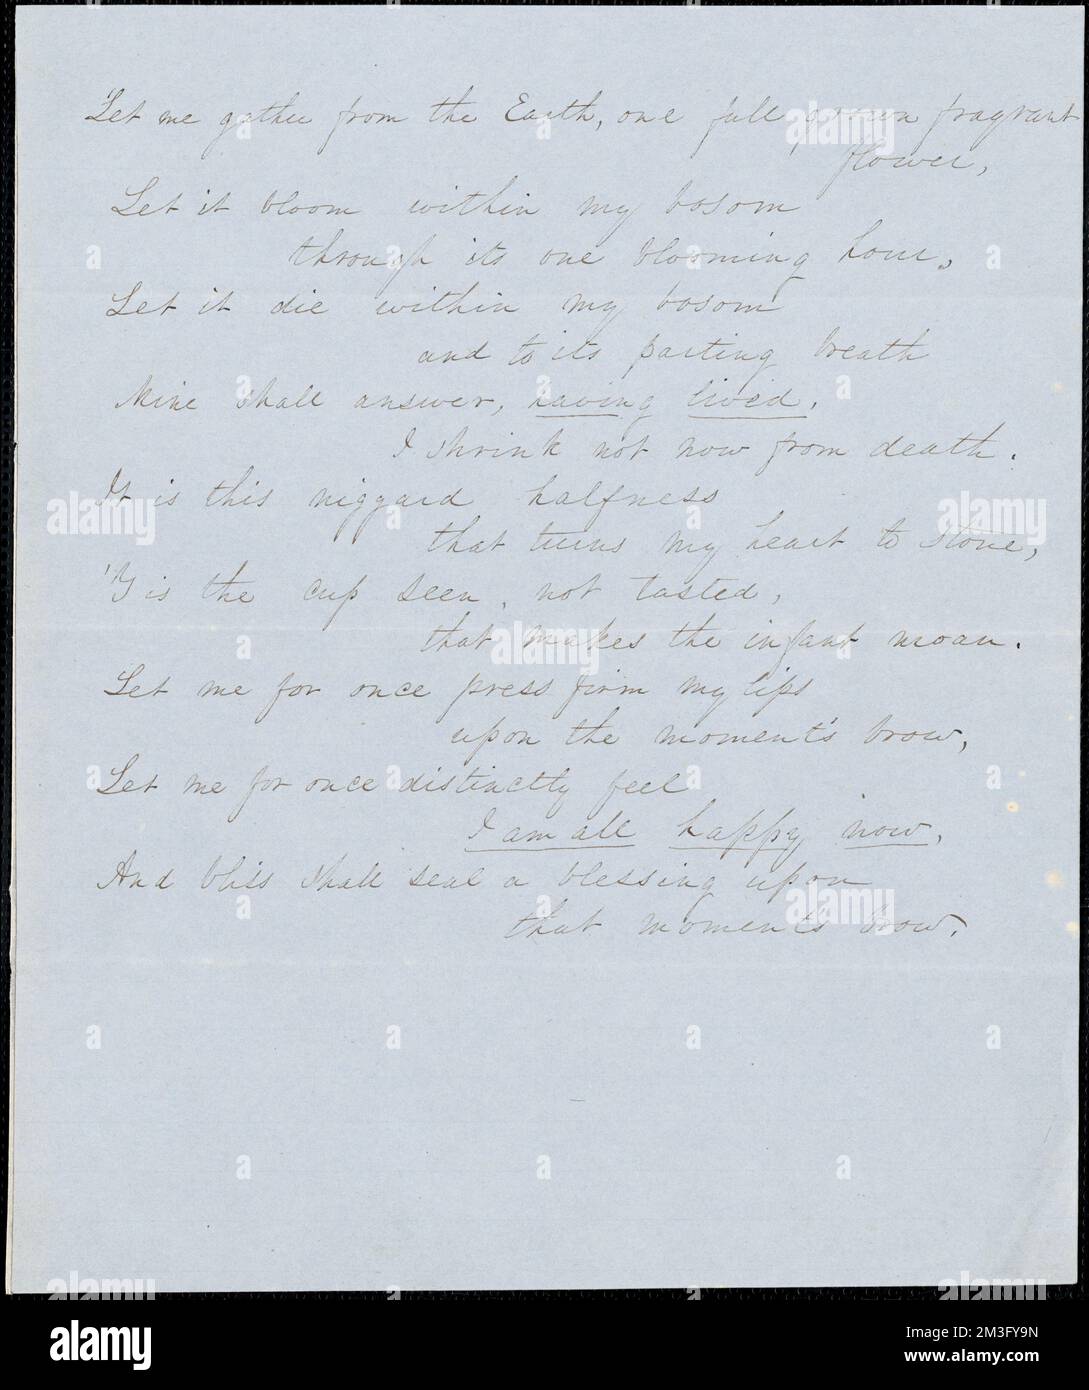 Let me gather from the Earth, one full grown fragrant
flower,
Let it bloom within my bosom
through its one blooming hour.
Let it die within my bosom
and to its parting breath
Mine shall answer, having lived,
I shrink not now from death.
It is this niggard halfness
that turns my heart to stone,
'T is the cup seen, not tasted,
that makes the infant moan.
Let me for once press firm my lips
upon the moment's brow,
Let me for once distinctly feel
I am all happy now,
And bliss shall seal a blessing upon
that moment's brow.
alamy
Image ID: 2M3FY9N
www.alamy.com